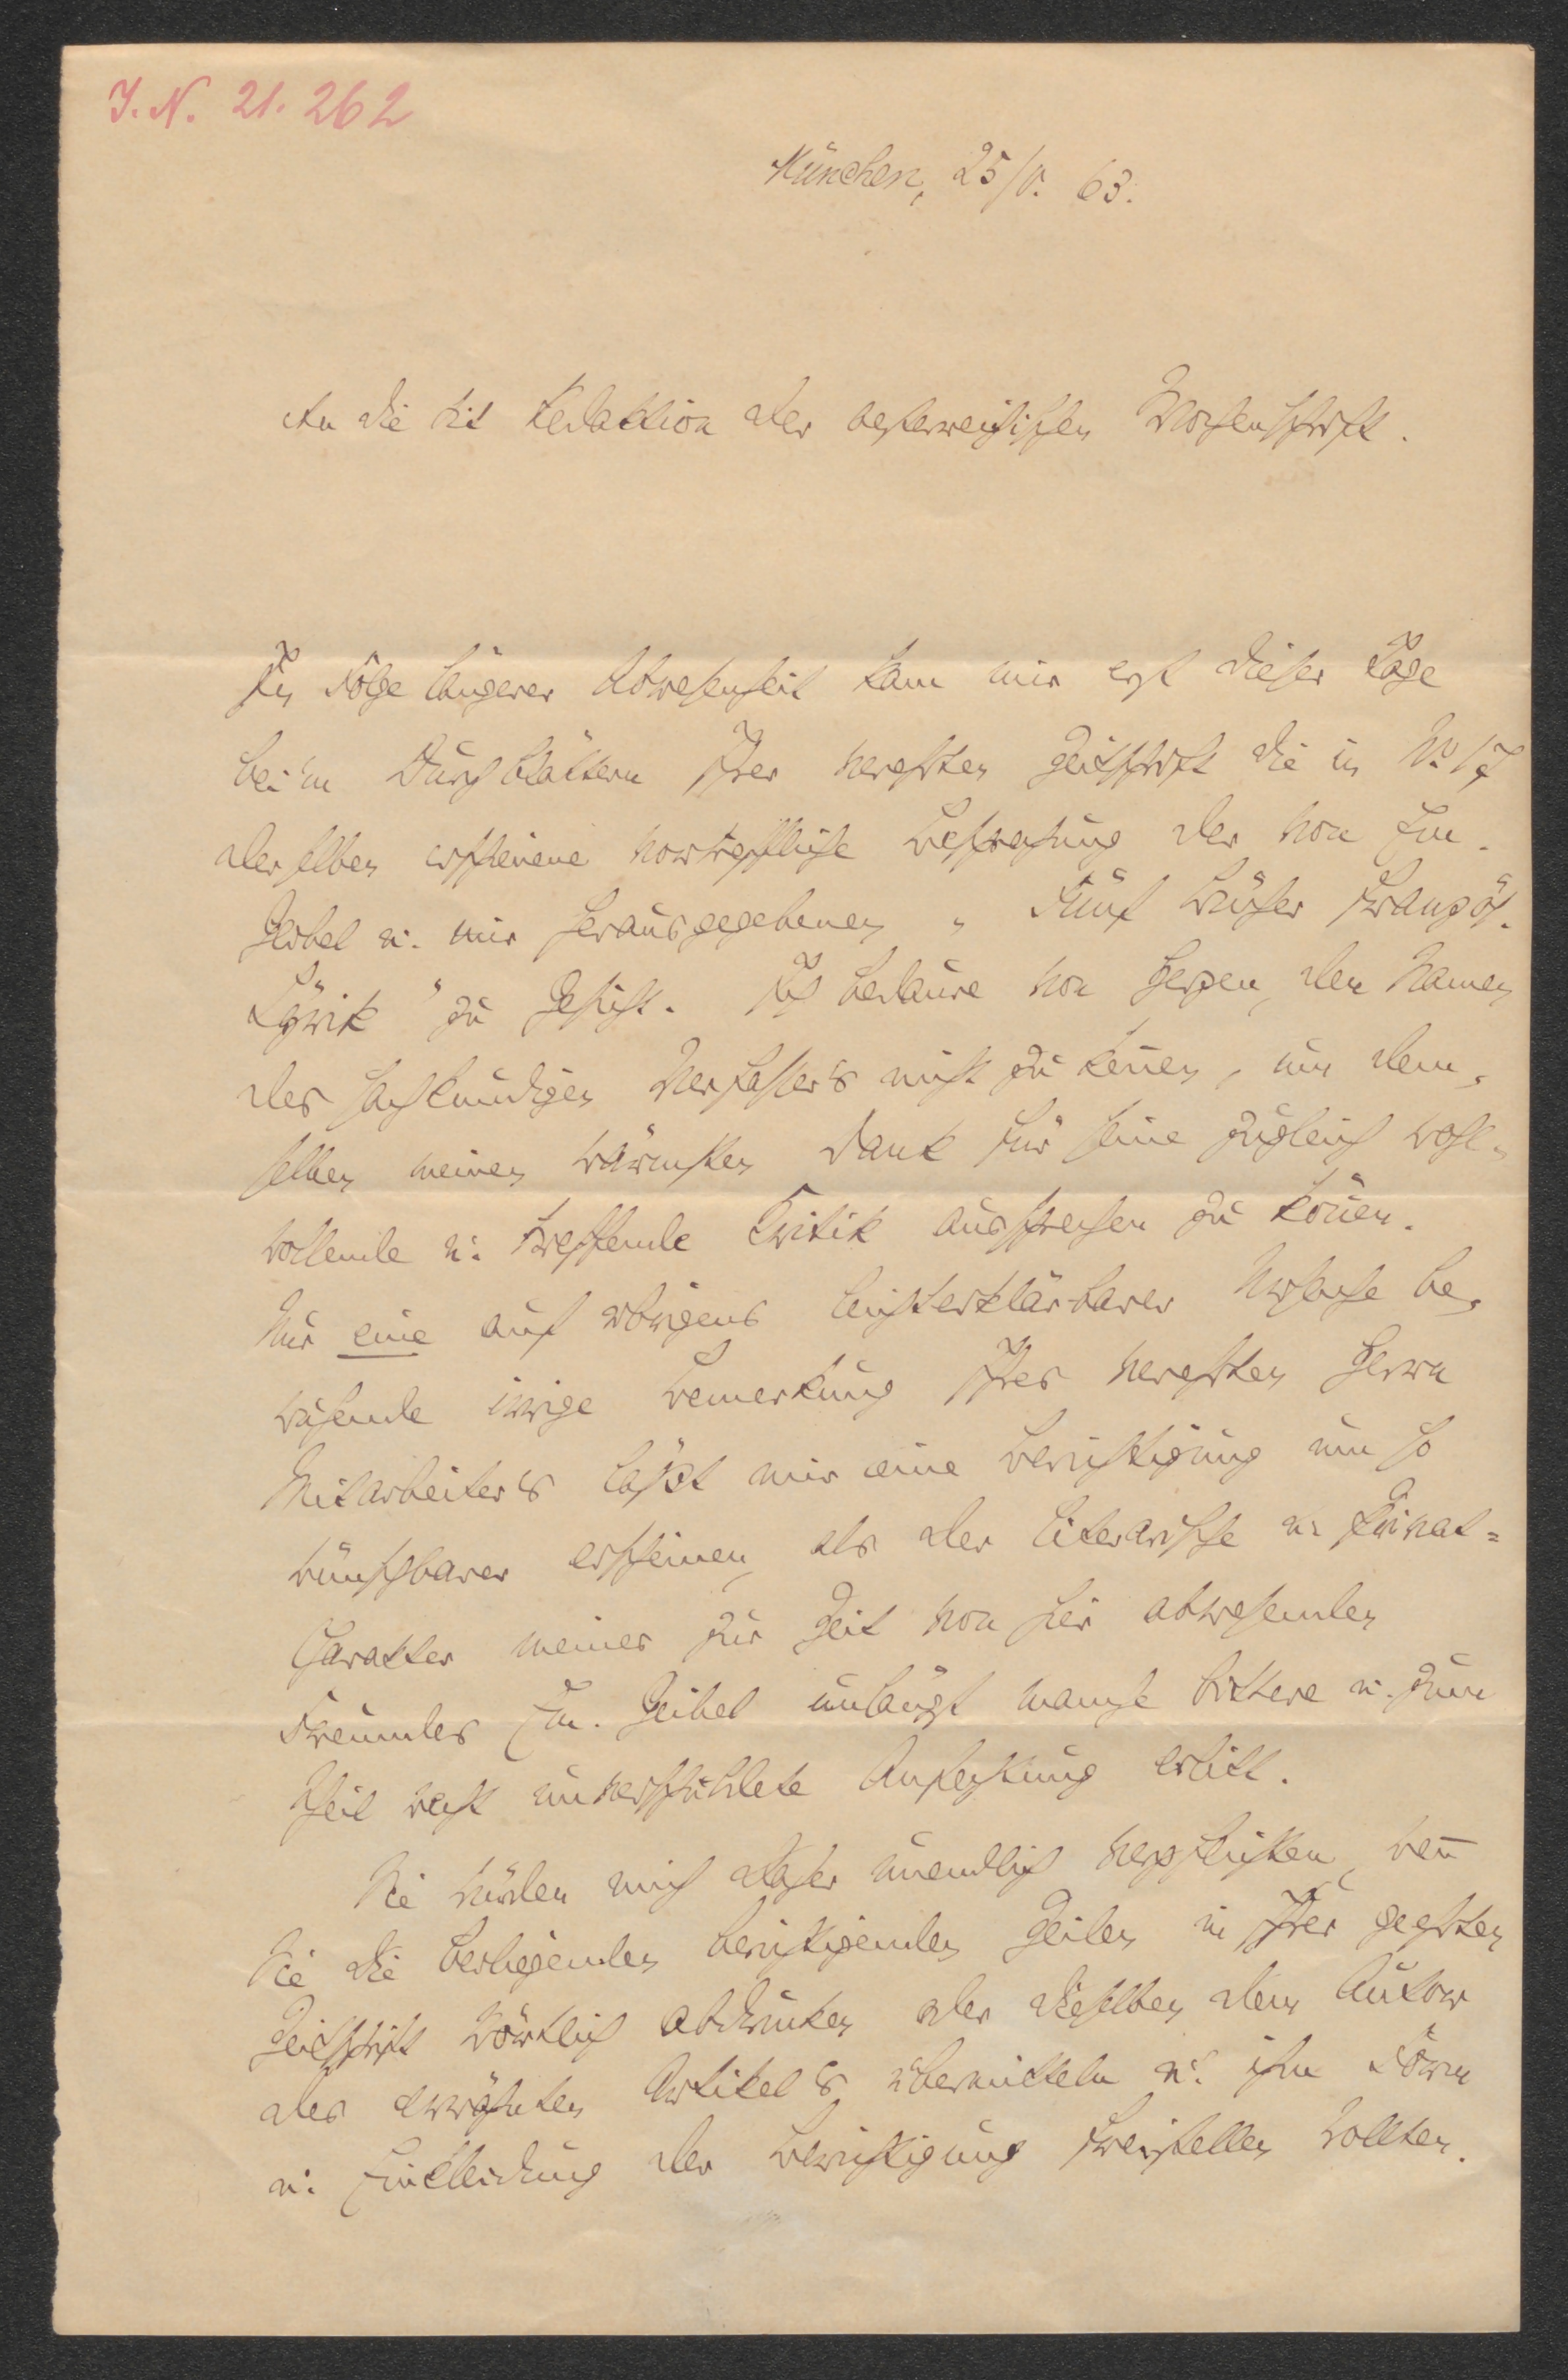 I. N. 21. 262
München, 25/V. 63.
An die lit Redaktion der oesterreichischen Wochenschrift.
In Folge längerer Abwesenheit kam mir erst dieser Tage
bei'm Durchblättern Ihrer verehrten Zeitschrift die in No 17
derselben erschienene vortreffliche Besprechung der von Em.
Geibel u. mir herausgegebenen „Fünf Bücher französ.
Lÿrik" zu Gesicht. Ich bedaure von Herzen, den Namen
des sachkundigen Verfassers nicht zu kennen, um dem-
selben meinen wärmsten Dank für seine zugleich wohl-
wollende u. treffende Kritik aussprechen zu können.
Nur eine auf übrigens leichterklärbarer Ursache be-
ruhende irrige Bemerkung Ihres verehrten Herrn
Mitarbeiters läßt mir eine Berichtigung um so
wünschbarer erscheinen, als der literarische u. Privat=
Charakter meines zur Zeit von hier abwesenden
Freundes Em. Geibel unlängst manche bittere u. zum
Theil recht unverschuldete Anfechtung erlitt.
Sie würden mich daher unendlich verpflichten, wenn
Sie die beiliegenden berichtigenden Zeilen in Ihrer geehrten
Zeitschrift wörtlich abdrucken oder dieselben dem Autor
des erwähnten Artikels übermitteln u. ihm Form
u. Einkleidung der Berichtigung freistellen wollten.